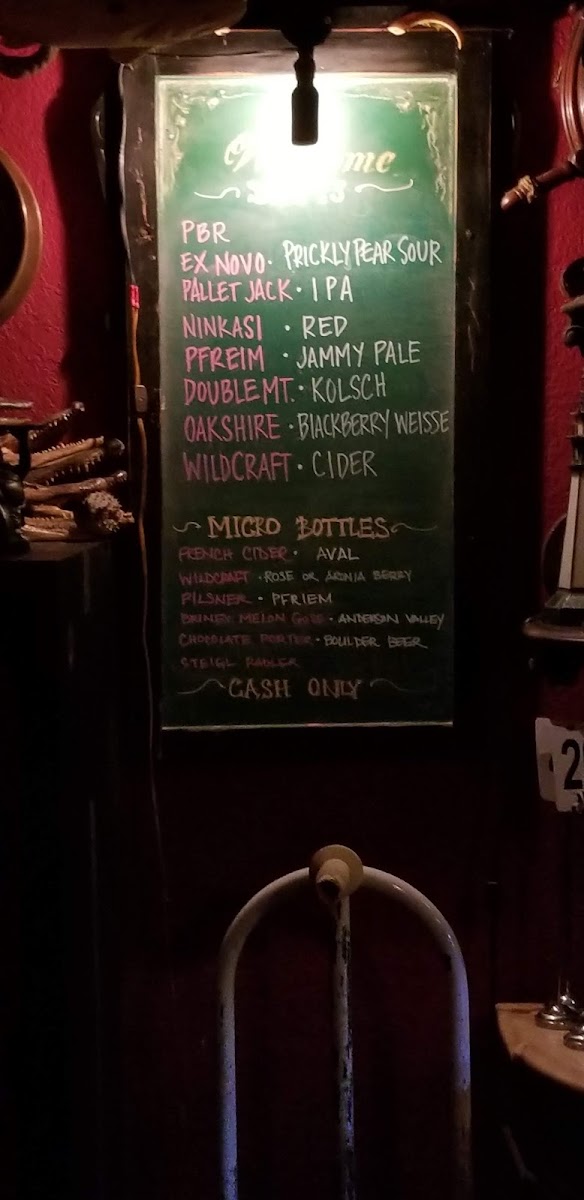 PBR
EX NOVO · PRICKLY PEAR SOUR
PALLET JACK · IPA
NINKASI · RED
PFREIM · JAMMY PALE
DOUBLE MT. · KOLSCH
OAKSHIRE · BLACKBERRY WEISSE
WILDCRAFT · CIDER
MICRO BOTTLES
FRENCH CIDER · AVAL
WILDCRAFT · ROSE OR ARONIA BERRY
PILSNER · PFRIEM
BRINEY MELON GOSE · ANDERSON VALLEY
CHOCOLATE PORTER · BOULDER BEER
STEIGL RADLER
CASH ONLY
2